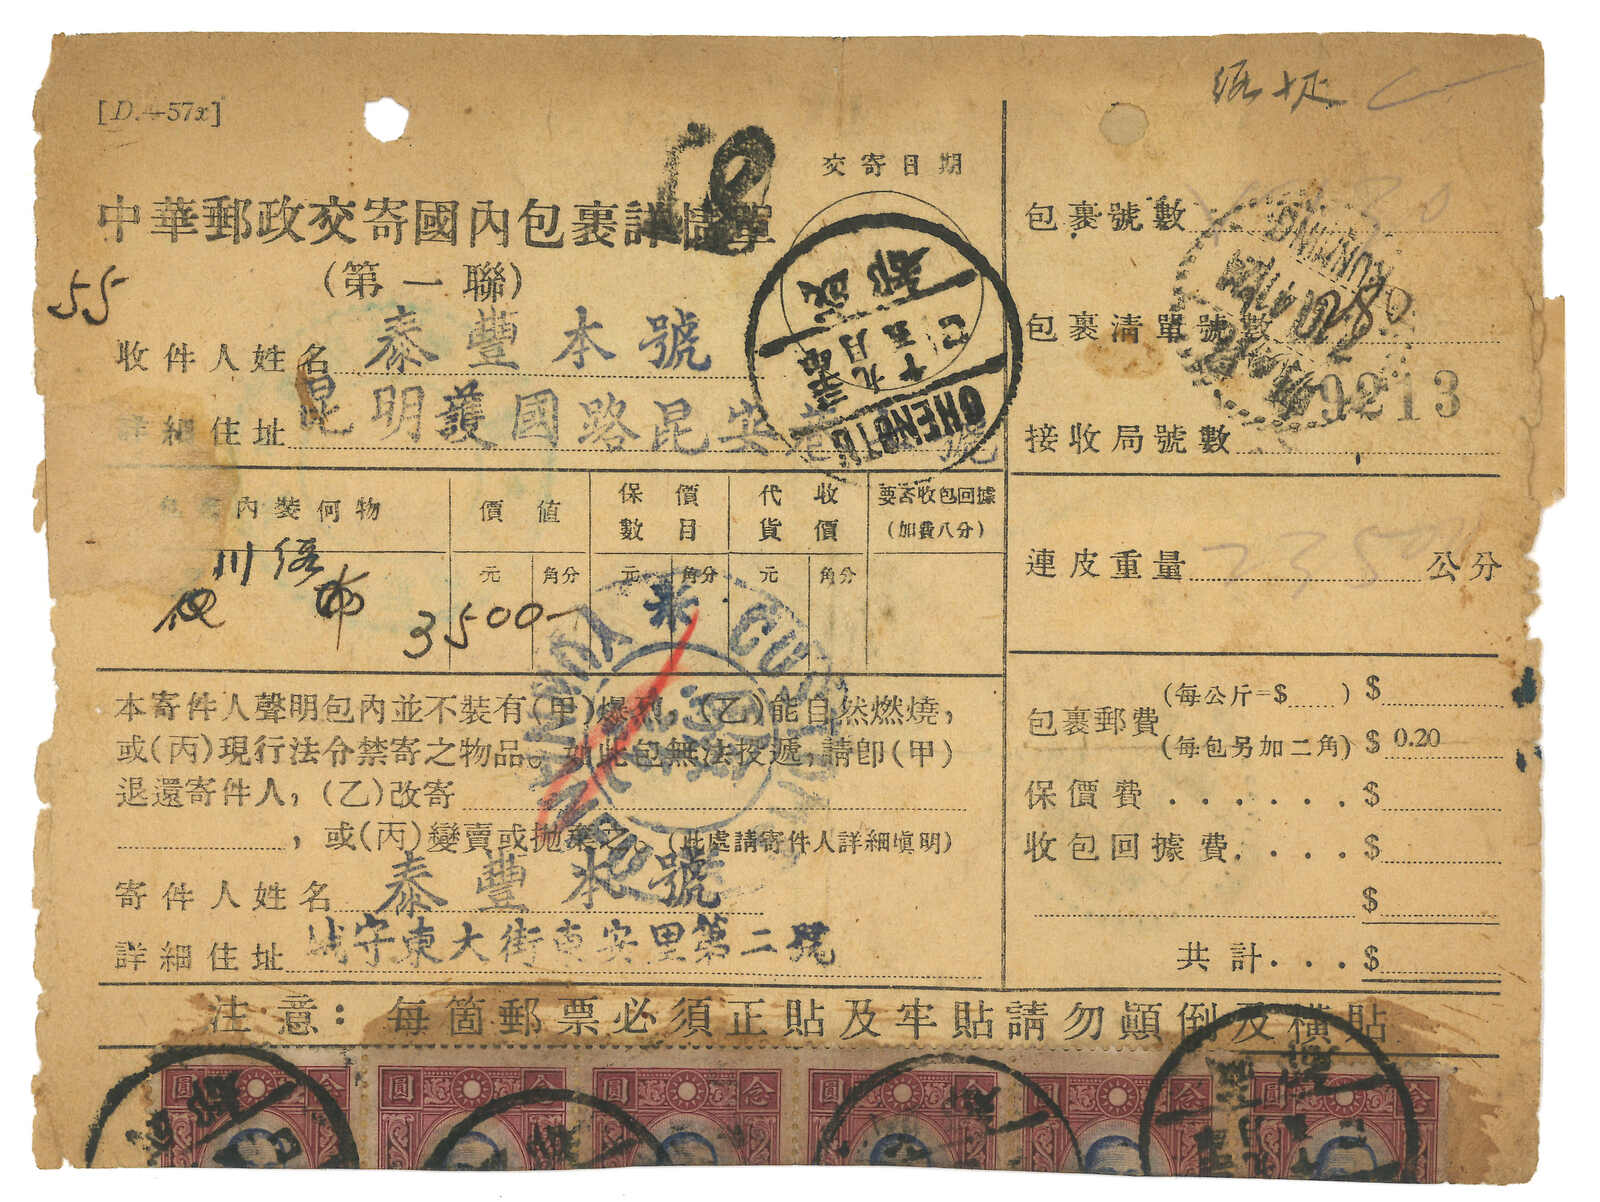 [D.-57x]
58
交寄日期
中華郵政交寄國內包裹詳情單
(第一聯)
55
收件人姓名 泰豐本號
詳細住址 昆明護國路昆安巷 號
成都
CHENGTU
內裝何物
價值
保價數目
代收貨價
要寄收包回據
(加費八分)
元 角分 元 角分 元 角分
川
布
3500-
CUSTOMS
本寄件人聲明包內並不裝有(甲)爆烈,(乙)能自然燃燒,
或(丙)現行法令禁寄之物品。如此包無法投遞,請卽(甲)
退還寄件人,(乙)改寄
,或(丙)變賣或拋棄之。(此處請寄件人詳細塡明)
寄件人姓名 泰豐本號
詳細住址 城守東大街東安里第二號
包裹號數
KUNMING
包裹清單號數
9213
接收局號數
連皮重量 2350 公分
包裹郵費
(每公斤=$ ) $
(每包另加二角) $ 0.20
保價費 . . . . . . $
收包回據費. . . . $
$
共計. . . $
注意:每箇郵票必須正貼及牢貼請勿顚倒及橫貼
圓 念 圓 念 圓 念 圓 念 圓 念 念